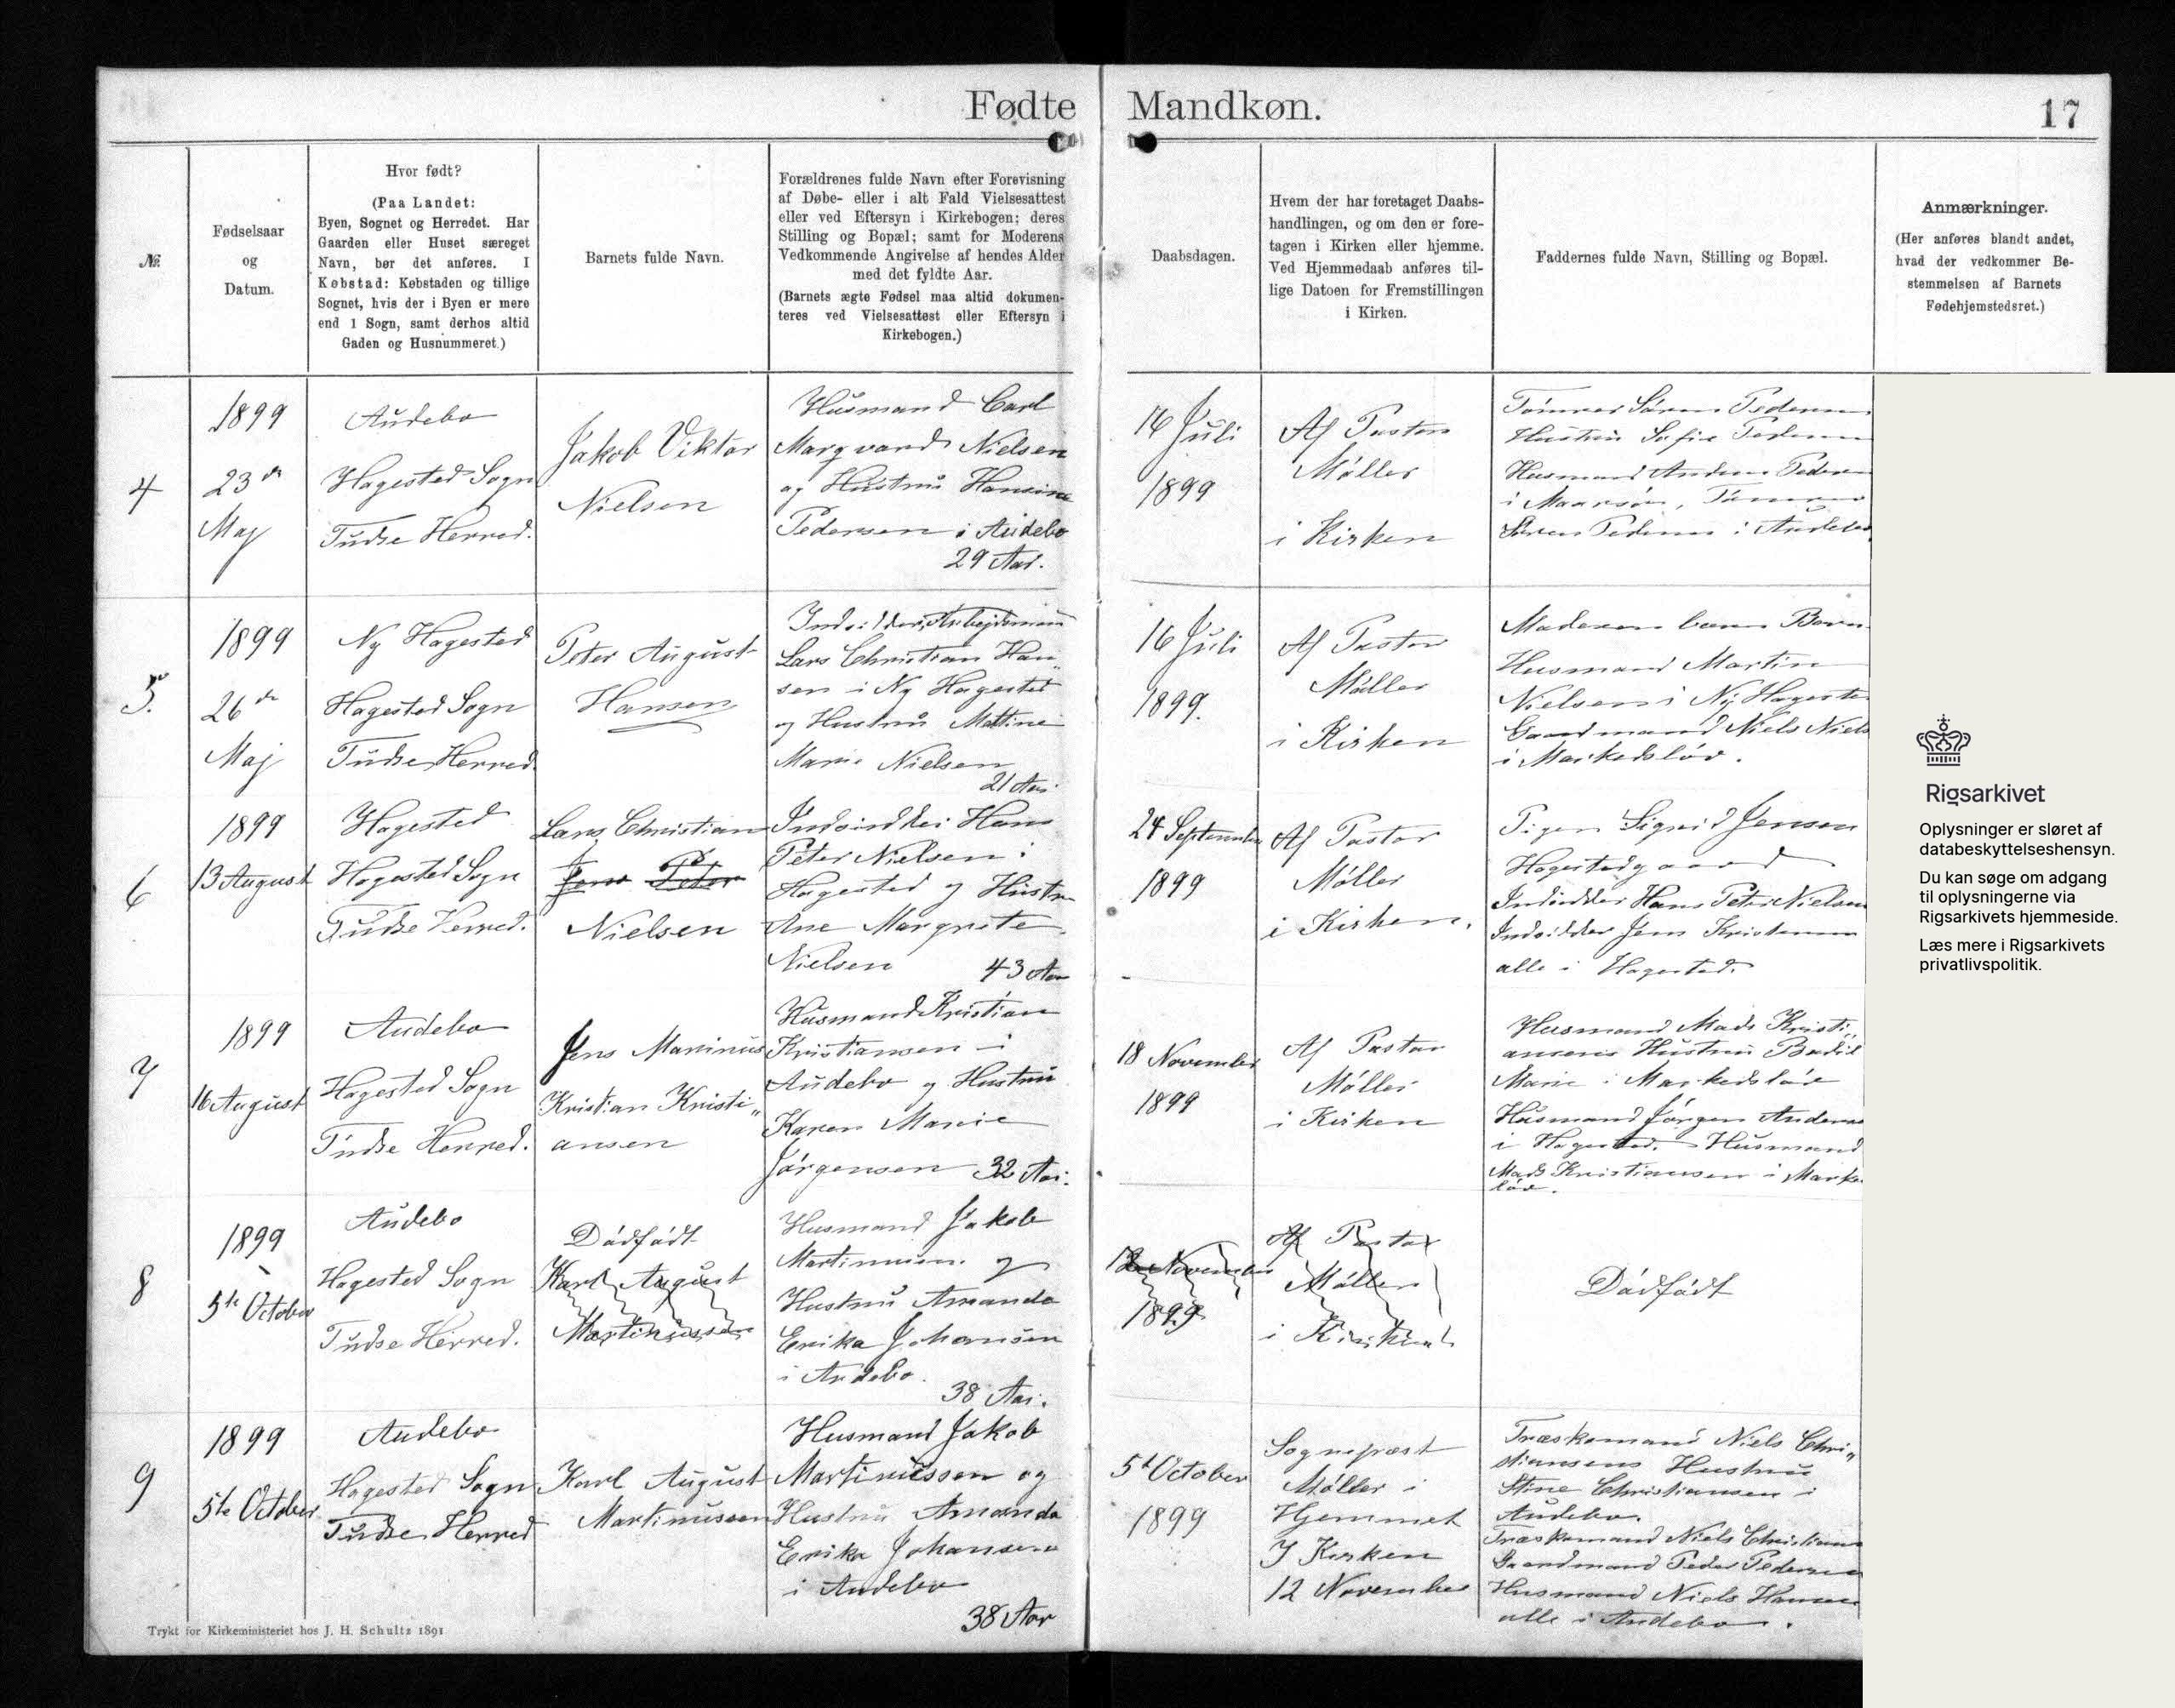 Fødte Mandkøn.
17
№.
Fødselsaar
og
Datum.
Hvor født?
(Paa Landet:
Byen, Sognet og Herredet. Har
Gaarden eller Huset særeget
Navn, bør det anføres. I
Købstad: Købstaden og tillige
Sognet, hvis der i Byen er mere
end 1 Sogn, samt derhos altid
Gaden og Husnummeret.)
Barnets fulde Navn.
Forældrenes fulde Navn efter Forevisning
af Døbe- eller i alt Fald Vielsesattest
eller ved Eftersyn i Kirkebogen; deres
Stilling og Bopæl; samt for Moderens
Vedkommende Angivelse af hendes Alder
med det fyldte Aar.
(Barnets ægte Fødsel maa altid dokumen-
teres ved Vielsesattest eller Eftersyn i
Kirkebogen.)
Daabsdagen.
Hvem der har foretaget Daabs-
handlingen, og om den er fore-
tagen i Kirken eller hjemme.
Ved Hjemmedaab anføres til-
lige Datoen for Fremstillingen
i Kirken.
Faddernes fulde Navn, Stilling og Bopæl.
Anmærkninger.
(Her anføres blandt andet,
hvad der vedkommer Be-
stemmelsen af Barnets
Fødehjemstedsret.)
4
1899
23de
Maj
Audebo
Hagested Sogn
Tudse Herred.
Jakob Viktor
Nielsen
Husmand Carl
Marqvard Nielsen
og Hustru Hansine
Pedersen i Audebo
29 Aar.
16 Juli
1899
Af Pastor
Møller
i Kirken
Tømrer Søren Pedersen
Hustru Sofie Pedersen
Husmand Anders Pedersen
i Maarsø, Tømrer
Søren Pedersen i Audebo
5.
1899
26de
Maj
Ny Hagested
Hagested Sogn
Tudse Herred.
Peter August
Hansen
Indsidder, Arbejdsmand
Lars Christian Han„
sen i Ny Hagested
og Hustru Mettine
Marie Nielsen
21 Aar.
16 Juli
1899.
Af Pastor
Møller
i Kirken
Moderen barn Barn
Husmand Martin
Nielsen i Ny Hageste
Gaardmand Niels Niels
i Markeslöv.
6
1899
13 August
Hagested
Hagested Sogn
Tudse Herred.
Lars Christian
Jens Peter
Nielsen
Indsidder Hans
Peter Nielsen i
Hagested og Hustru
Ane Margrete
Nielsen 43 Aar
24 September
1899
Af Pastor
Møller
i Kirken.
Pigen Sigrid Jensen
Hagestedgaard
Indsidder Hans Peter Nielsen
Indsidder Jens Kristensen
alle i Hagested.
7
1899
16 August
Audebo
Hagested Sogn
Tudse Herred.
Jens Marinus
Kristian Kristi„
ansen
Husmand Kristian
Kristiansen i
Audebo og Hustru
Karen Marie
Jørgensen 32 Aar.
18 November
1899
Af Pastor
Møller
i Kirken
Husmand Mads Kristi„
ansens Hustru Bodil
Marie i Markeslöv
Husmand Jørgen Andersen
i Hagested. Husmand
Mads Kristiansen i Marke
löv.
8
1899
5te October
Audebo
Hagested Sogn
Tudse Herred.
Dødfødt
Karl August
Martinussen
Husmand Jakob
Martinussen og
Hustru Amanda
Erika Johansen
i Audebo.
38 Aar.
12 November
1899
Af Pastor
Møller
i Kirken
Dødfødt
9
1899
5te October
Audebo
Hagested Sogn
Tudse Herred
Karl August
Martinussen
Husmand Jakob
Martinussen og
Hustru Amanda
Erika Johansen
i Audebo
38 Aar
5te October
1899
Sognepræst
Møller i
Hjemmet
I Kirken
12 November
Træskomand Niels Chri„
stiansens Hustru
Stine Christiansen i
Audebo.
Træskomand Niels Christians
Gaardmand Peder Pedersen
Husmand Niels Hansen
alle i Audebo.
Trykt for Kirkeministeriet hos J. H. Schultz 1891
Rigsarkivet
Oplysninger er sløret af
databeskyttelseshensyn.
Du kan søge om adgang
til oplysningerne via
Rigsarkivets hjemmeside.
Læs mere i Rigsarkivets
privatlivspolitik.